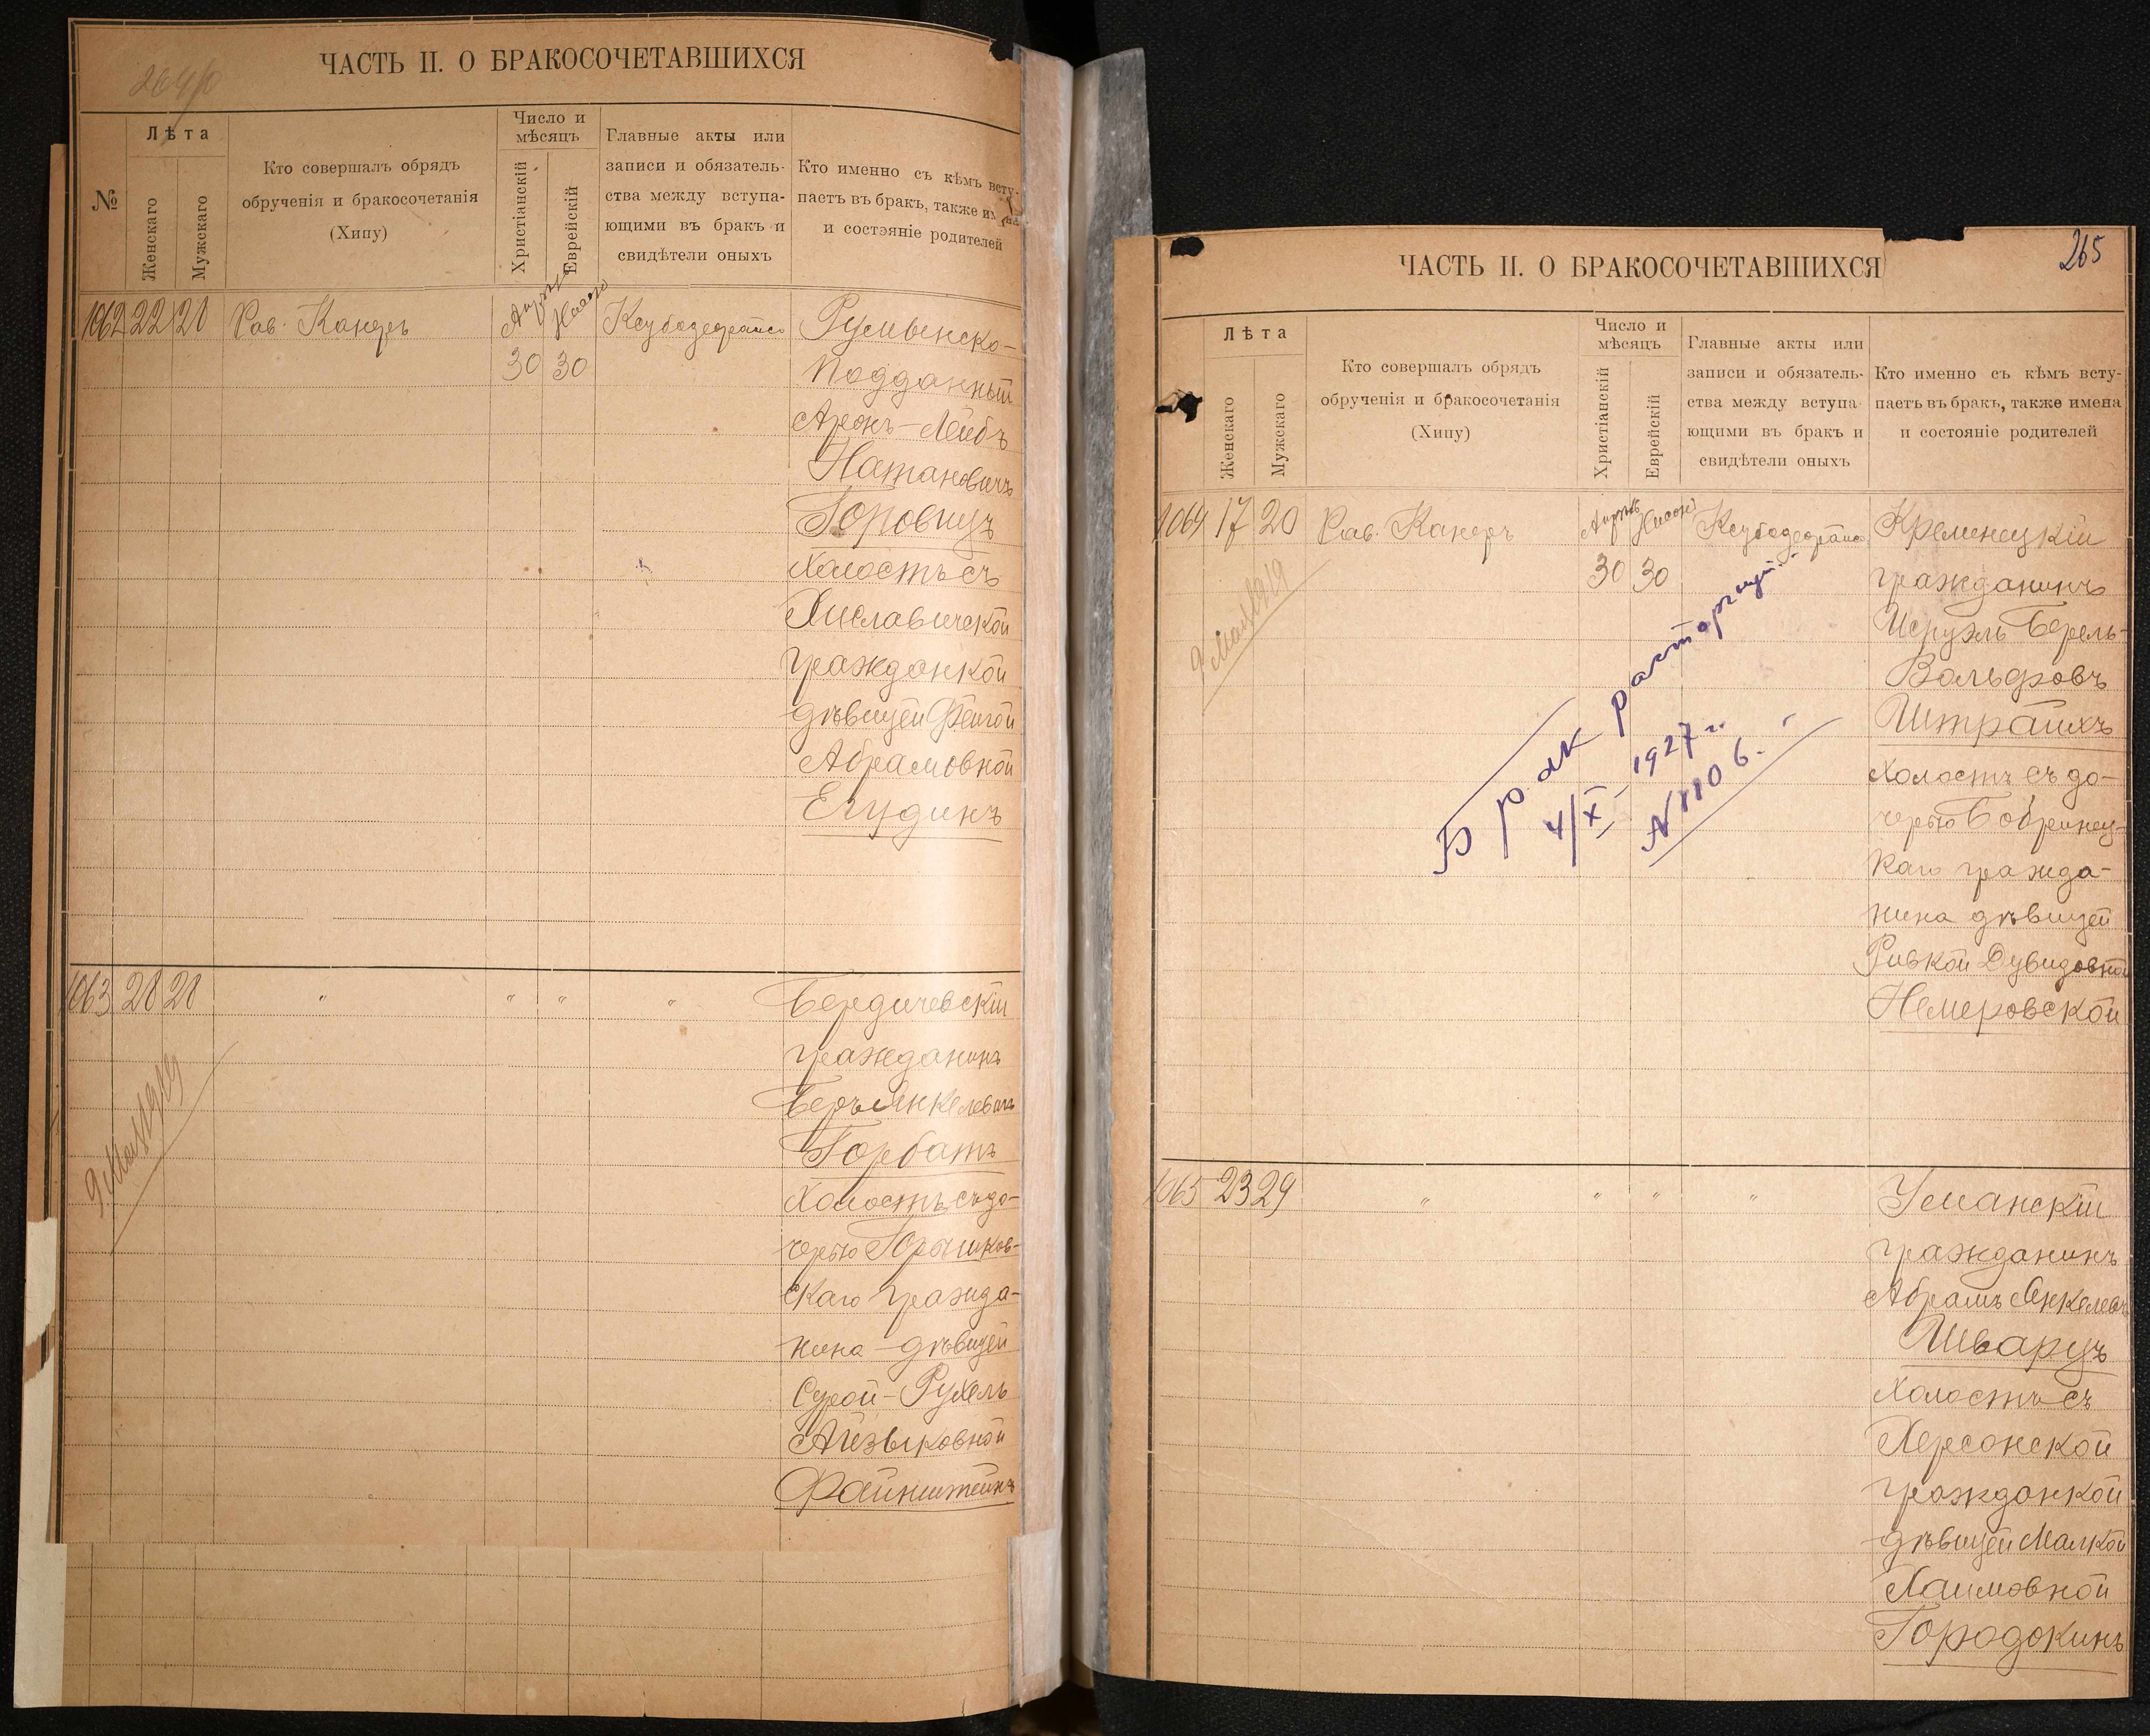 264/об
ЧАСТЬ II. О БРАКОСОЧЕТАВШИХСЯ
№
Лѣта
Женскаго
Мужскаго
Кто совершалъ обрядъ
обрученія и бракосочетанія
(Хипу)
Число и
мѣсяцъ
Христіанскій
Еврейскій
Главные акты или
записи и обязатель-
ства между вступа-
ющими въ бракъ и
свидѣтели оныхъ
Кто именно съ кѣмъ всту-
паетъ въ бракъ, также имена
и состояніе родителей
1062 22 28 Рав. Канеръ
30 30
Румынско-
подданный
Аронъ-Лейбъ
Натановичъ
Горовицъ
холостъ съ
Хиславичской
гражданкой
дѣвицей Фейгой
Абрамовной
Егудинъ
1063 28 28 " " " "
Бердичевскій
гражданинъ
Беръ Янкелевичъ
Горбатъ
холостъ съ до-
черью Горошков-
скаго гражда-
нина дѣвицей
Сурой-Рухель
Айзыковной
Файнштейнъ
9 Мая 1919
265
ЧАСТЬ II. О БРАКОСОЧЕТАВШИХСЯ
Лѣта
Женскаго
Мужскаго
Кто совершалъ обрядъ
обрученія и бракосочетанія
(Хипу)
Число и
мѣсяцъ
Христіанскій
Еврейскій
Главные акты или
записи и обязатель-
ства между вступа-
ющими въ бракъ и
свидѣтели оныхъ
Кто именно съ кѣмъ всту-
паетъ въ бракъ, также имена
и состояніе родителей
1064 17 20 Рав. Канеръ
30 30
9 Мая 1919
Брак расторгнут
4/X 1927 г.
N 1106.
Кременецкій
гражданинъ
Исруэль Берель-
Вольфовъ
Штрайхъ
холостъ съ до-
черью Бобринец-
каго гражда-
нина дѣвицей
Ривкой Дувидовной
Немеровской
1065 23 29 " " " "
Уманскій
гражданинъ
Абрамъ Янкелевъ
Шварцъ
холостъ съ
Херсонской
гражданкой
дѣвицей Малкой
Хаимовной
Городокинъ